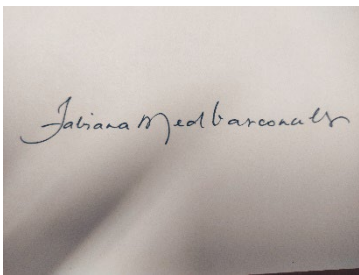 Fabiana Med Vasconcelos